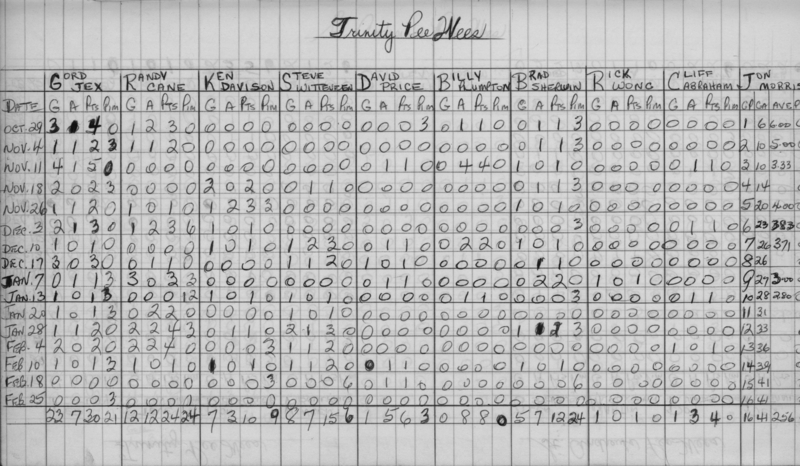 Trinity Pee Wees
GORD RANDY KEN STEVE DAVID BILLY BRAD RICK CLIFF JON
JEX CANE DAVISON WITTEVEEN PRICE PLUMPTON SHERMAN WONG ABRAHAM MORRIS
DATE G A Pts Pim G A Pts Pim G A Pts Pim G A Pts Pim G A Pts Pim G A Pts Pim G A Pts Pim G A Pts Pim G A Pts Pim GP GA AVE
OCT. 29 3 1 4 0 1 2 3 0 0 0 0 0 0 0 0 0 0 0 0 3 0 1 1 0 0 1 1 3 0 0 0 0 0 0 0 0 1 6 6.00
NOV. 4 1 1 2 3 1 1 2 0 0 0 0 0 0 0 0 0 0 0 0 0 0 0 0 0 0 1 1 3 0 0 0 0 0 0 0 0 2 10 5.00
NOV. 11 4 1 5 0 0 0 0 0 0 0 0 0 0 0 0 0 0 1 1 0 0 4 4 0 1 0 1 0 0 0 0 0 0 1 1 0 3 10 3.33
NOV. 18 2 0 2 3 0 0 0 0 2 0 2 0 0 1 1 0 0 0 0 0 0 0 0 0 0 1 1 3 0 0 0 0 0 0 0 0 4 14
NOV. 26 1 1 2 0 1 0 1 0 1 2 3 3 0 0 0 0 0 0 0 0 0 0 0 0 1 0 1 0 0 0 0 0 0 0 0 0 5 20 4.00
DEC. 3 2 1 3 0 1 2 3 6 1 0 1 0 0 0 0 0 0 0 0 0 0 0 0 0 0 0 0 3 0 0 0 0 0 1 1 0 6 23 3.83
DEC. 10 1 0 1 0 0 0 0 0 1 0 1 0 1 2 3 0 0 1 1 0 0 2 2 0 1 0 1 0 0 0 0 0 0 0 0 0 7 26 3.71
DEC. 17 3 0 3 0 0 1 1 0 0 0 0 0 1 1 2 0 1 0 1 0 0 0 0 0 0 1 1 0 0 0 0 0 0 0 0 0 8 26
JAN. 7 0 1 1 3 3 0 3 3 0 0 0 0 0 0 0 0 0 1 1 0 0 0 0 0 0 2 2 0 1 0 1 0 0 0 0 0 9 27 3.00
JAN. 13 1 0 1 3 0 0 0 12 1 0 1 0 1 0 1 0 0 0 0 0 0 1 1 0 0 0 0 3 0 0 0 0 0 1 1 0 10 28 2.80
JAN 20 1 0 1 3 0 2 2 0 0 0 0 0 1 0 1 0 0 0 0 0 0 0 0 0 0 0 0 0 0 0 0 0 0 0 0 0 11 31
JAN 28 1 1 2 0 2 2 4 3 0 1 1 0 2 1 3 0 0 0 0 0 0 0 0 0 1 1 2 3 0 0 0 0 0 0 0 0 12 33
FEB. 4 2 0 2 0 2 2 4 0 0 0 0 3 1 1 2 0 0 0 0 0 0 0 0 0 0 0 0 0 0 0 0 0 1 0 1 0 13 36
FEB 10 1 0 1 3 1 0 1 0 1 0 1 0 1 1 2 0 0 1 1 0 0 0 0 0 1 0 1 0 0 0 0 0 0 0 0 0 14 39
FEB. 18 0 0 0 0 0 0 0 0 0 0 0 3 0 0 0 6 0 1 1 0 0 0 0 0 0 0 0 6 0 0 0 0 0 0 0 0 15 41
FEB. 25 0 0 0 3 0 0 0 0 0 0 0 0 0 0 0 0 0 0 0 0 0 0 0 0 0 0 0 0 0 0 0 0 0 0 0 0 16 41
23 7 30 21 12 12 24 24 7 3 10 9 8 7 15 6 1 5 6 3 0 8 8 0 5 7 12 24 1 0 1 0 1 3 4 0 16 41 2.56